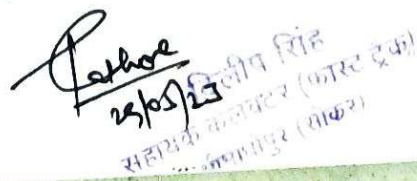 Rathore
29/05/23
दिलीप सिंह
सहायक कलक्टर (फास्ट ट्रेक)
(सीकर)